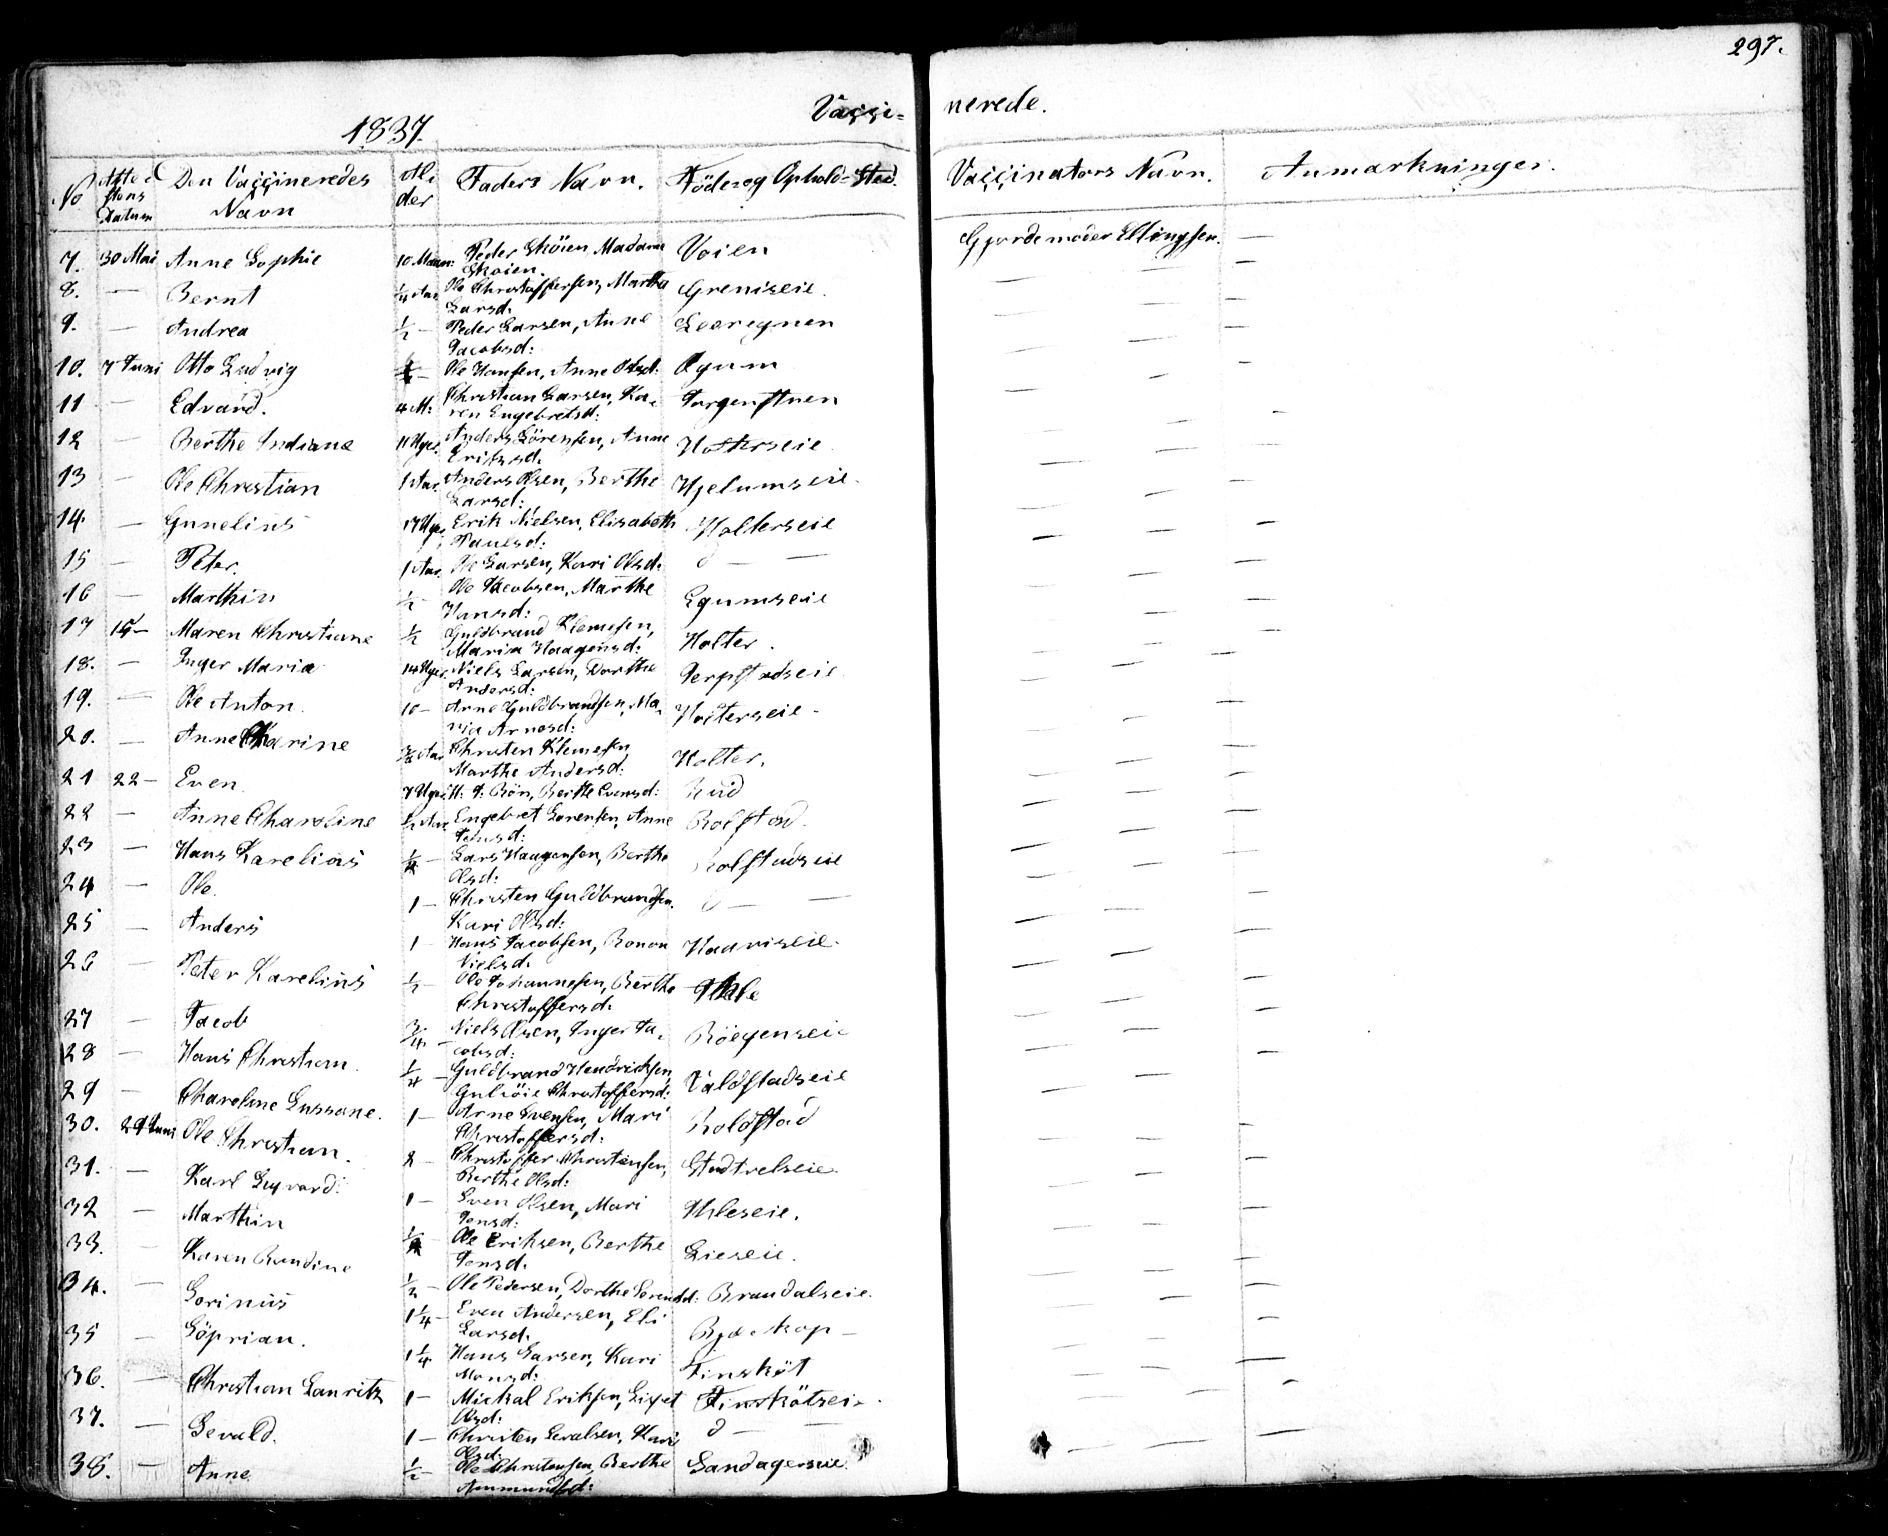 297.
1837
Vacci= nerede.
No Atte= stens Datum Den Vaccineredes Navn Al= der Faders Navn. Föde= og Ophold=Sted. Vaccinators Navn. Anmærkninger.
7. 30 Mai Anne Sophie 10 Maan: Peder Sköien Madame Skoien. Voien Gjordemoder Ellingsen. —
8. — Bernt 1/4 Aar Ole Christoffersen, Marthe Larsd. Greniseie. — —
9. — Andrea 1/2 — Peder Larsen, Anne Jacobsd: — —
10. 7 Juni Otto Ludvig Ole Hansen, Anne Olsd: — —
11 — Edvard. 4 M: Christian Larsen, Ka= ren Engebretsd: — —
12 — Berthe Indiane 11 Uger Anders Sörensen, Anne Eriksd. Holterseie — —
13 — Ole Christian 1 Aar Anders Olsen, Berthe Larsd: Hjelumseie. — —
14. — Gunelius 17 Uger Erik Nielsen, Elisabeth Paulsd: Holterseie — —
15 — Peter. 1 Aar Ole Larsen, Kari Olsd: d — — — —
16 — Marthin 1/2 — Ole Jacobsen, Marthe Hansd: Egumseie — —
17 15 — Maren Christiane 1/2 Guldbrand Klemesen, Maria Haagensd: Holter. — —
18. — Inger Maria 14 Uger Niels Larsen, Dorthe Andersd: Jerpstadseie — —
19. — Ole Anton. 10 — Arne Guldbrandsen, Ma= ria Arnesd: Holterseie — —
20. — Anne Karine Aar Christen Klemesen Marthe Andersd: Holter. — —
21 22 — Even. 7 Uger H: P: Bön, Berthe Evensd: Rud — —
22 — Anne Charoline 1/2 Aar Engebret Sorensen, Anne Jensd: Rolstad. — —
23 — Hans Karelius Lars Haagensen, Berthe Olsd: Rolstadseie — —
24 — Ole. 1 — Christen Guldbrandsen. Kari Olsd: d — — — —
25 — Anders 1 — Hans Jacobsen, Ronon Nielsd. Haaviseie. — —
26 — Peter Karelius 1/2 — Ole Johannesen, Berthe Christoffersd. Ihle — —
27 — Jacob 3/4 — Niels Olsen, Inger Ja= cobsd: Böegenseie — —
28 — Hans Christian. 1/4 — Guldbrand Hendricksen Guliöie Christoffersd: Valdstadseie — —
29 — Charoline Sussane. 1 — Arne Svensen, Mari Christoffersd: Roldstad — —
30. 29 Juni Ole Christian. 2 — Christoffer Christensen, Berthe Olsd: — —
31. — Karl Sigvard. 1 — Even Olsen, Mari Jensd: Ihleseie. — —
32 — Marthin Ole Eriksen, Berthe Jensd. Lieseie. — —
33. — Karen Randine 1/2 — Ole Pedersen, Dorthe Sorensd: Brandalseie. — —
34. — Sorinus 1 1/4 — Even Andersen, Eli Larsd. — —
35 — Söprian. 1 1/4 Hans Larsen, Kari Monsd: Finsköt — —
36. — Christian Lauritz 1 — Mickal Eriksen, Liset Olsd: Finskötseie — —
37. — Sevald. 1 — Christen Sevalsen, Kari Olsd. d — — — —
38. — Anne. 1/2 — Ole Christensen, Berthe Ammundsd: Sandagerseie. — —